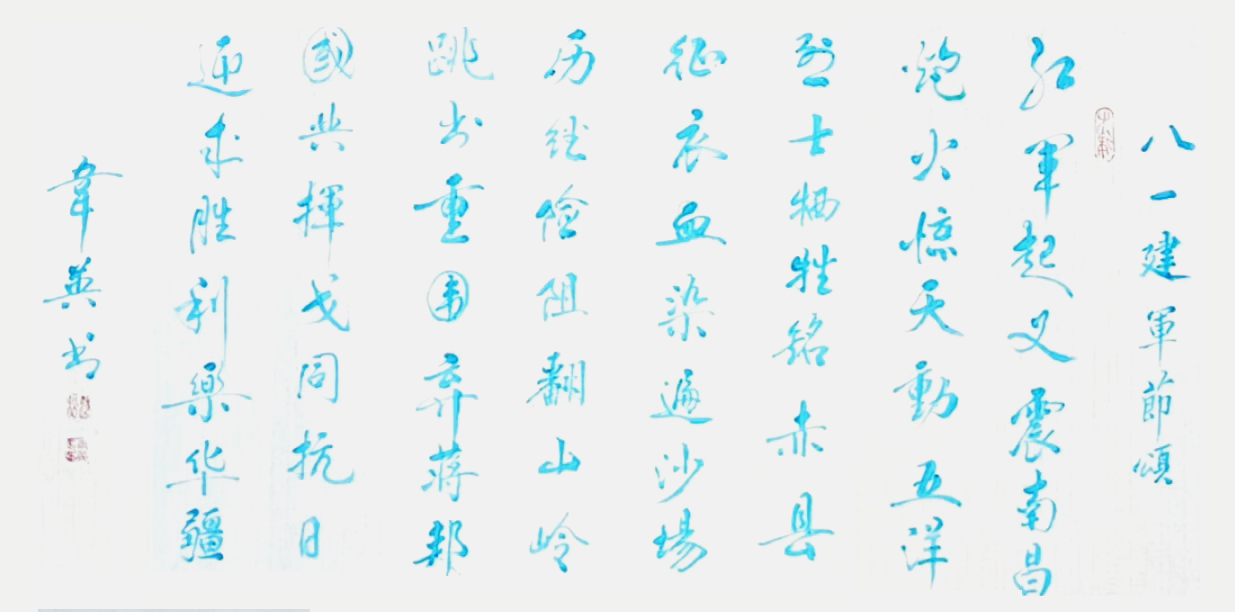 八一建軍節頌
红軍起义震南昌
炮火惊天動五洋
烈士牺牲铭赤县
征衣血染遍沙場
历经险阻翻山岭
跳出重围弃蒋邦
國共揮戈同抗日
迎来胜利樂华疆
韋英书